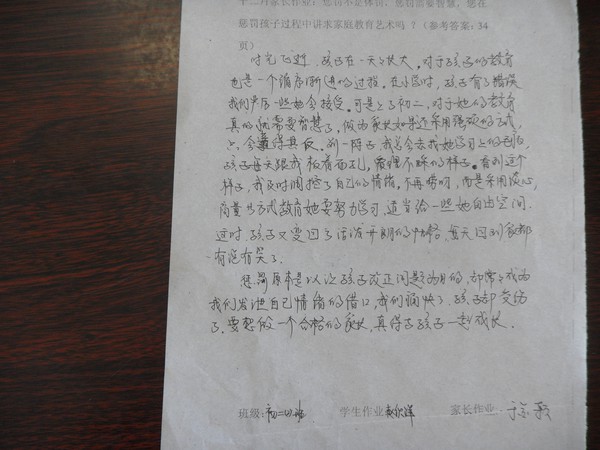 十二月家长作业：惩罚不是体罚，惩罚需要智慧，您在
惩罚孩子过程中讲求家庭教育艺术吗？（参考答案：34
页）
时光飞逝，孩子在一天天长大，对于孩子的教育
也是一个循序渐进的过程。在小学时，孩子有了错误
我们严厉一些她会接受。可是上了初二，对于她的教育
真的就需要智慧了，做为家长如果还采用强硬的方式，
只会适得其反。前一阵子，我总会去找她学习上的毛病，
孩子每天跟我板着面孔，爱理不理的样子。看到这个
样子，我及时调控了自己的情绪，不再唠叨，而是采用谈心，
商量的方式教育她要努力学习，适当给一些她自由空间。
这时，孩子又变回了活泼开朗的性格，每天回到家都
有说有笑了。
惩罚原本是以让孩子改正问题为目的，却常常成为
我们发泄自己情绪的借口，我们痛快了，孩子却受伤
了。要想做一个合格的家长，真得与孩子一起成长。
班级：初二四班 学生作业 家长作业